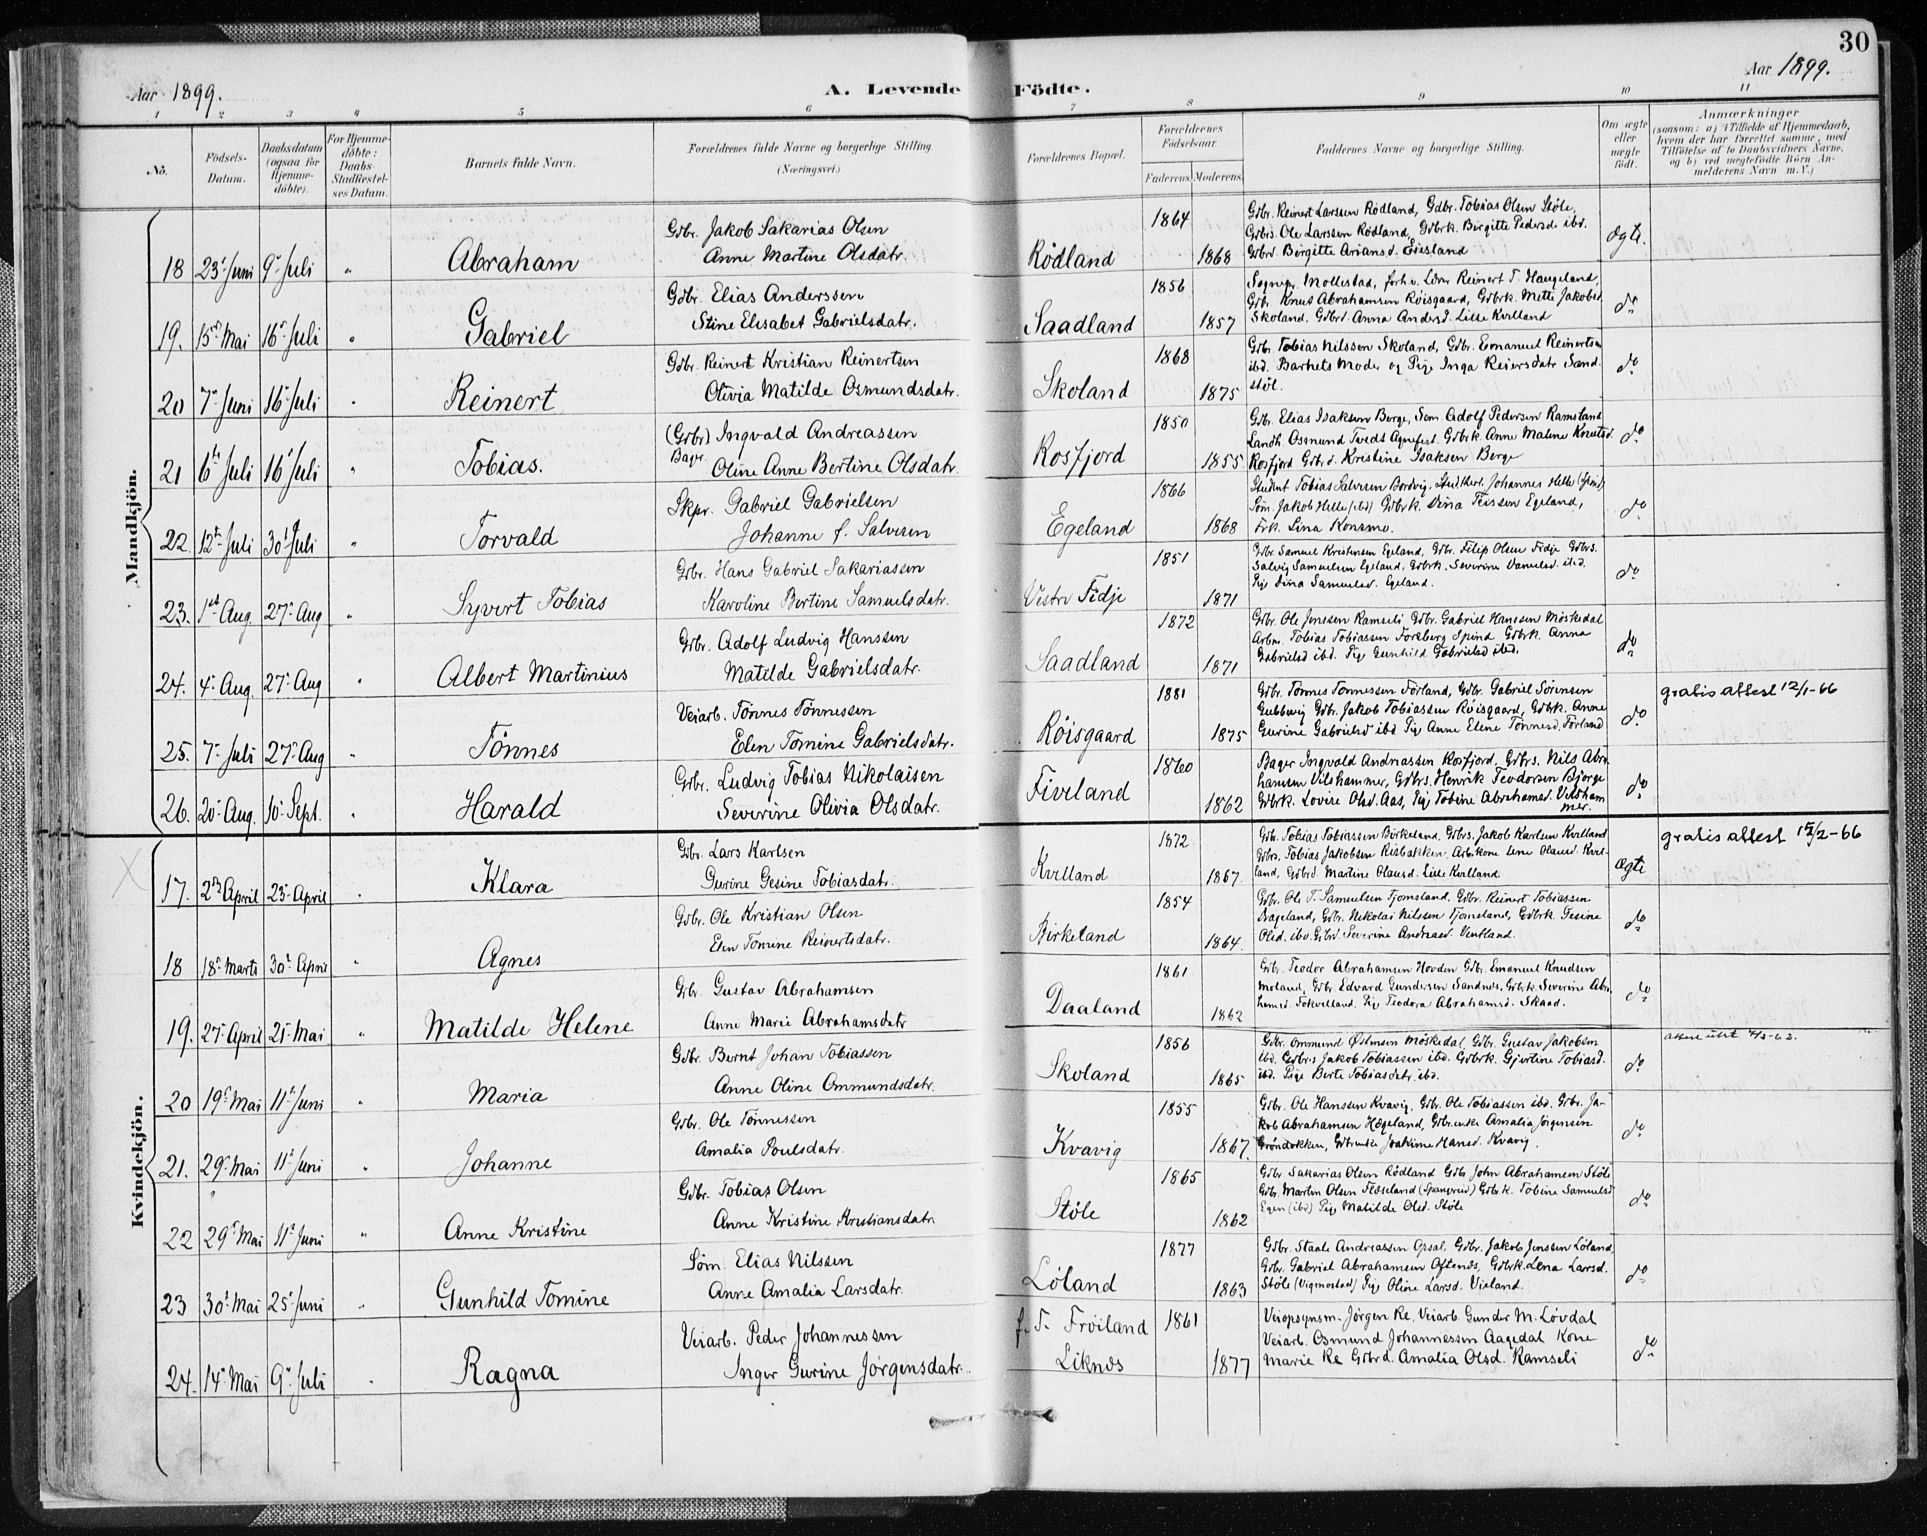 30
Aar 1899.
A. Levende Födte.
Aar 1899.
1 2 3 4 5 6 7 8 9 10 11
No.
Födsels-Datum.
Daabsdatum (ogsaa for Hjemmedöbte).
For Hjemmedöbte: Daabs-Stadfæstelses Datum.
Barnets fulde Navn.
Forældrenes fulde Navne og borgerlige Stilling.
(Næringsvei.)
Forældrenes Bopæl.
Forældrenes Födselsaar.
Faderens. Moderens.
Faddernes Navne og borgerlige Stilling.
Om ægte eller uægte födt.
Anmærkninger
(saasom: a) i Tilfælde af Hjemmedaab, hvem der har forrettet samme, med Tilföielse af to Daabsvidners Navne, og b) ved uægtefödte Börn Anmelderens Navn m. V.)
Mandkjön.
18 23 Juni 9 Juli " Abraham
Gdbr. Jakob Sakarias Olsen
Anne Martine Olsdatr.
Rødland 1864 1868
Gdbr. Reinert Larssen Rødland, Gdbr. Tobias Olsen Støle,
Gdbrs. Ole Larssen Rødland, Gdbrk. Birgitte Pedersd. ibd.
Gdbrd. Birgitte Ariansd. Eiesland
ægte.
19. 15 Mai 16 Juli " Gabriel
Gdbr. Elias Anderssen
Stine Elisabet Gabrielsdatr.
Saadland 1856 1857
Sogнepr. Mollestad, forh.v. Lærer Reinert T. Haugeland,
Gdbr. Knut Abrahamsen Røisgaard, Gdbrk. Mette Jakobsd.
Skoland, Gdbrd. Anna Andersd. Lille Kvilland
do
20 7 Juni 16 Juli " Reinert
Gdbr. Reinert Kristian Reinertsen
Olivia Matilde Osmundsdatr.
Skoland 1868 1875
Gdbr. Tobias Nilssen Skoland, Gdbr. Emanuel Reinertsen
ibd. Barnets Moder og Pige Inga Reiersdatr Sand-
støl.
do
21 6 Juli 16 Juli " Tobias.
(Gdbr) Ingvald Andreassen
Bager. Oline Anne Bertine Olsdatr.
Rosfjord 1850 1855
Gdbr. Elias Isaksen Berge, Søm. Adolf Pedersen Ramsland
Landh. Osmund Tvedt Agnefest. Gdbrk. Anne Maline Knutsd.
Rosfjord Gdbrd. Kristine Isaksen Berge
do
22 12 Juli 30 Juli " Torvald
Skpr. Gabriel Gabrielsen
Johanne f. Salvesen
Egeland 1866 1868
Student Tobias Salvesen Johannes Helle
Søm. Jakob Helle (ibd) Gdbrk. Dina Egeland,
Lina Konsmo.
do
23. 1 Aug. 27 Aug " Syvert Tobias
Gdbr. Hans Gabriel Sakariassen
Karoline Bertine Samuelsdatr.
Vestre Fidje 1851 1871
Gdbr. Samuel Kristensen Egeland, Gdbr. Filip Olsen Fidje Gdbrs.
Salvig Samuelsen Egeland, Gdbrk. Severine ibd.
Pig Dina Samuelsd. Egeland.
do
24. 4 Aug. 27 Aug " Albert Martinius
Gdbr. Adolf Ludvig Hanssen
Matilde Gabrielsdatr.
Saadland 1872 1871
Gdbr. Ole Jenssen Ramseli Gdbr. Gabriel Hanssen Møskedal
Arbm. Tobias Tobiassen Spind Gdbrk. Anna
Gabrielsd ibd. Pig Gunhild Gabrielsd ibd.
do
25. 7 Juli 27 Aug " Tönnes
Veiarb. Tønnes Tønnessen
Elen Tomine Gabrielsdatr.
Røisgaard 1881 1875
Gdbr. Tønnes Tønnessen Førland, Gdbr. Gabriel Sørensen
Gdbr. Jakob Tobiassen Røisgaard, Gdbrk. Anne
Gurine Gabrielsd ibd Pig Anne Elene Tønnesd. Førland
do
gratis attest 12/1-66
26. 20 Aug. 10 Sept. " Harald
Gdbr. Ludvig Tobias Nikolaisen
Severine Olivia Olsdatr.
Fiveland 1860 1862
Bager Ingvald Andreassen Rosfjord. Gdbrs. Nils Abra-
hamsen Vilshammer, Gdbrs. Henrik Teodorsen Bjørge
Gdbrk. Lovise Olsd. Aas, Pig Tobine Abrahamsd. Vilsham
mer.
do
Kvindekjön.
17. 2 April 23 April " Klara
Gdbr. Lars Karlsen
Gurine Gesine Tobiasdatr.
Kvilland 1872 1867.
Gdbr. Tobias Tobiassen Birkeland, Gdbrs. Jakob Karlsen Kvilland
Gdbrs. Tobias Jakobsen Risbakken, Arb.kone Lene Olausd. Kvil-
land, Gdbrd. Martine Olausd. Lille Kvilland
ægte
gratis attest 15/2-66
18 18 Marts 30 April " Agnes
Gdbr. Ole Kristian Olsen
Elen Tomine Reinertsdatr.
Birkeland 1854 1864.
Gdbr. Ole T. Samuelsen Tjomsland, Gdbr. Reinert Tobiassen
Aageland, Gdbr. Nikolai Nilssen Tjomsland, Gdbrk Gesine
Olsd. ibd. Gdbrd. Severine Andreasd.
do
19. 27 April 21 Mai " Matilde Helene
Gdbr. Gustav Abrahamsen
Anne Marie Abrahamsdatr
Daaland 1861 1862
Gdbr. Teodor Abrahamsen Hovden Gdbr. Emanuel Knudsen
Moland, Gdbr. Edvard Gundersen Sandnes, Gdbrk. Severine Abra-
hamsd. Pig Teodora Abrahamsd. Skaad.
do
20 19 Mai 11 Juni " Maria
Gdbr. Bernt Johan Tobiassen
Anne Oline Ommundsdatr.
Skoland 1856 1865
Gdbr. Ommund Møskedal, Gdbr. Gustav Jakobsen
ibd. Gdbrs. Jakob Tobiassen ibd. Gdbrk. Gjertine Tobiasd.
ibd. Pige Berte Tobiasdatr. ibd.
do
21. 29 Mai 11 Juni " Johanne
Gdbr. Ole Tønnessen
Amalia Poulsdatr.
Kvavig 1855 1867.
Gdbr. Ole Hanssen Kvavig, Gdbr. Ole Tobiassen ibd. Gdbr. Ja-
kob Abrahamsen Høgeland, Gdbr.enke Amalia Jørgensen
Grøndokken, Gdbrenke Joakime Hansd. Kvavig.
do
22 29 Mai 11 Juni " Anne Kristine
Gdbr. Tobias Olsen
Anne Kristine Kristiansdatr
Støle 1865 1862
Gdbr Sakarias Olsen Rødland Gdbr John Abrahamsen Støle
Gdbr. Martin Olsen Fløseland (Spangreid) Gdbrk. Tobine Samuelsd
Egen (ibd) Pig Matilde Olsd. Støle
do
23 30 Mai 25 Juni " Gunhild Tomine
Søm. Elias Nilssen
Anne Amalia Larsdatr.
Løland 1877 1863
Gdbr. Staale Andreassen Opsal, Gdbr. Jakob Jenssen Løland,
Gdbr. Gabriel Abrahamsen Oftenes, Gdbrk. Lena Larsd.
Støle (Vigmostad) Pig Oline Larsd. Vieland.
do
24. 14 Mai 9 Juli " Ragna
Veiarb. Peder Johannessen
Inger Gurine Jørgensdatr.
f. T. Frøiland
Liknes 1861 1877
Veiopsynsm. Jørgen Re, Veiarb Gunder M. Løvdal
Veiarb. Osmund Johannessen Aagedal Kone
Marie Re Gdbrd. Amalia Olsd. Ramseli
do